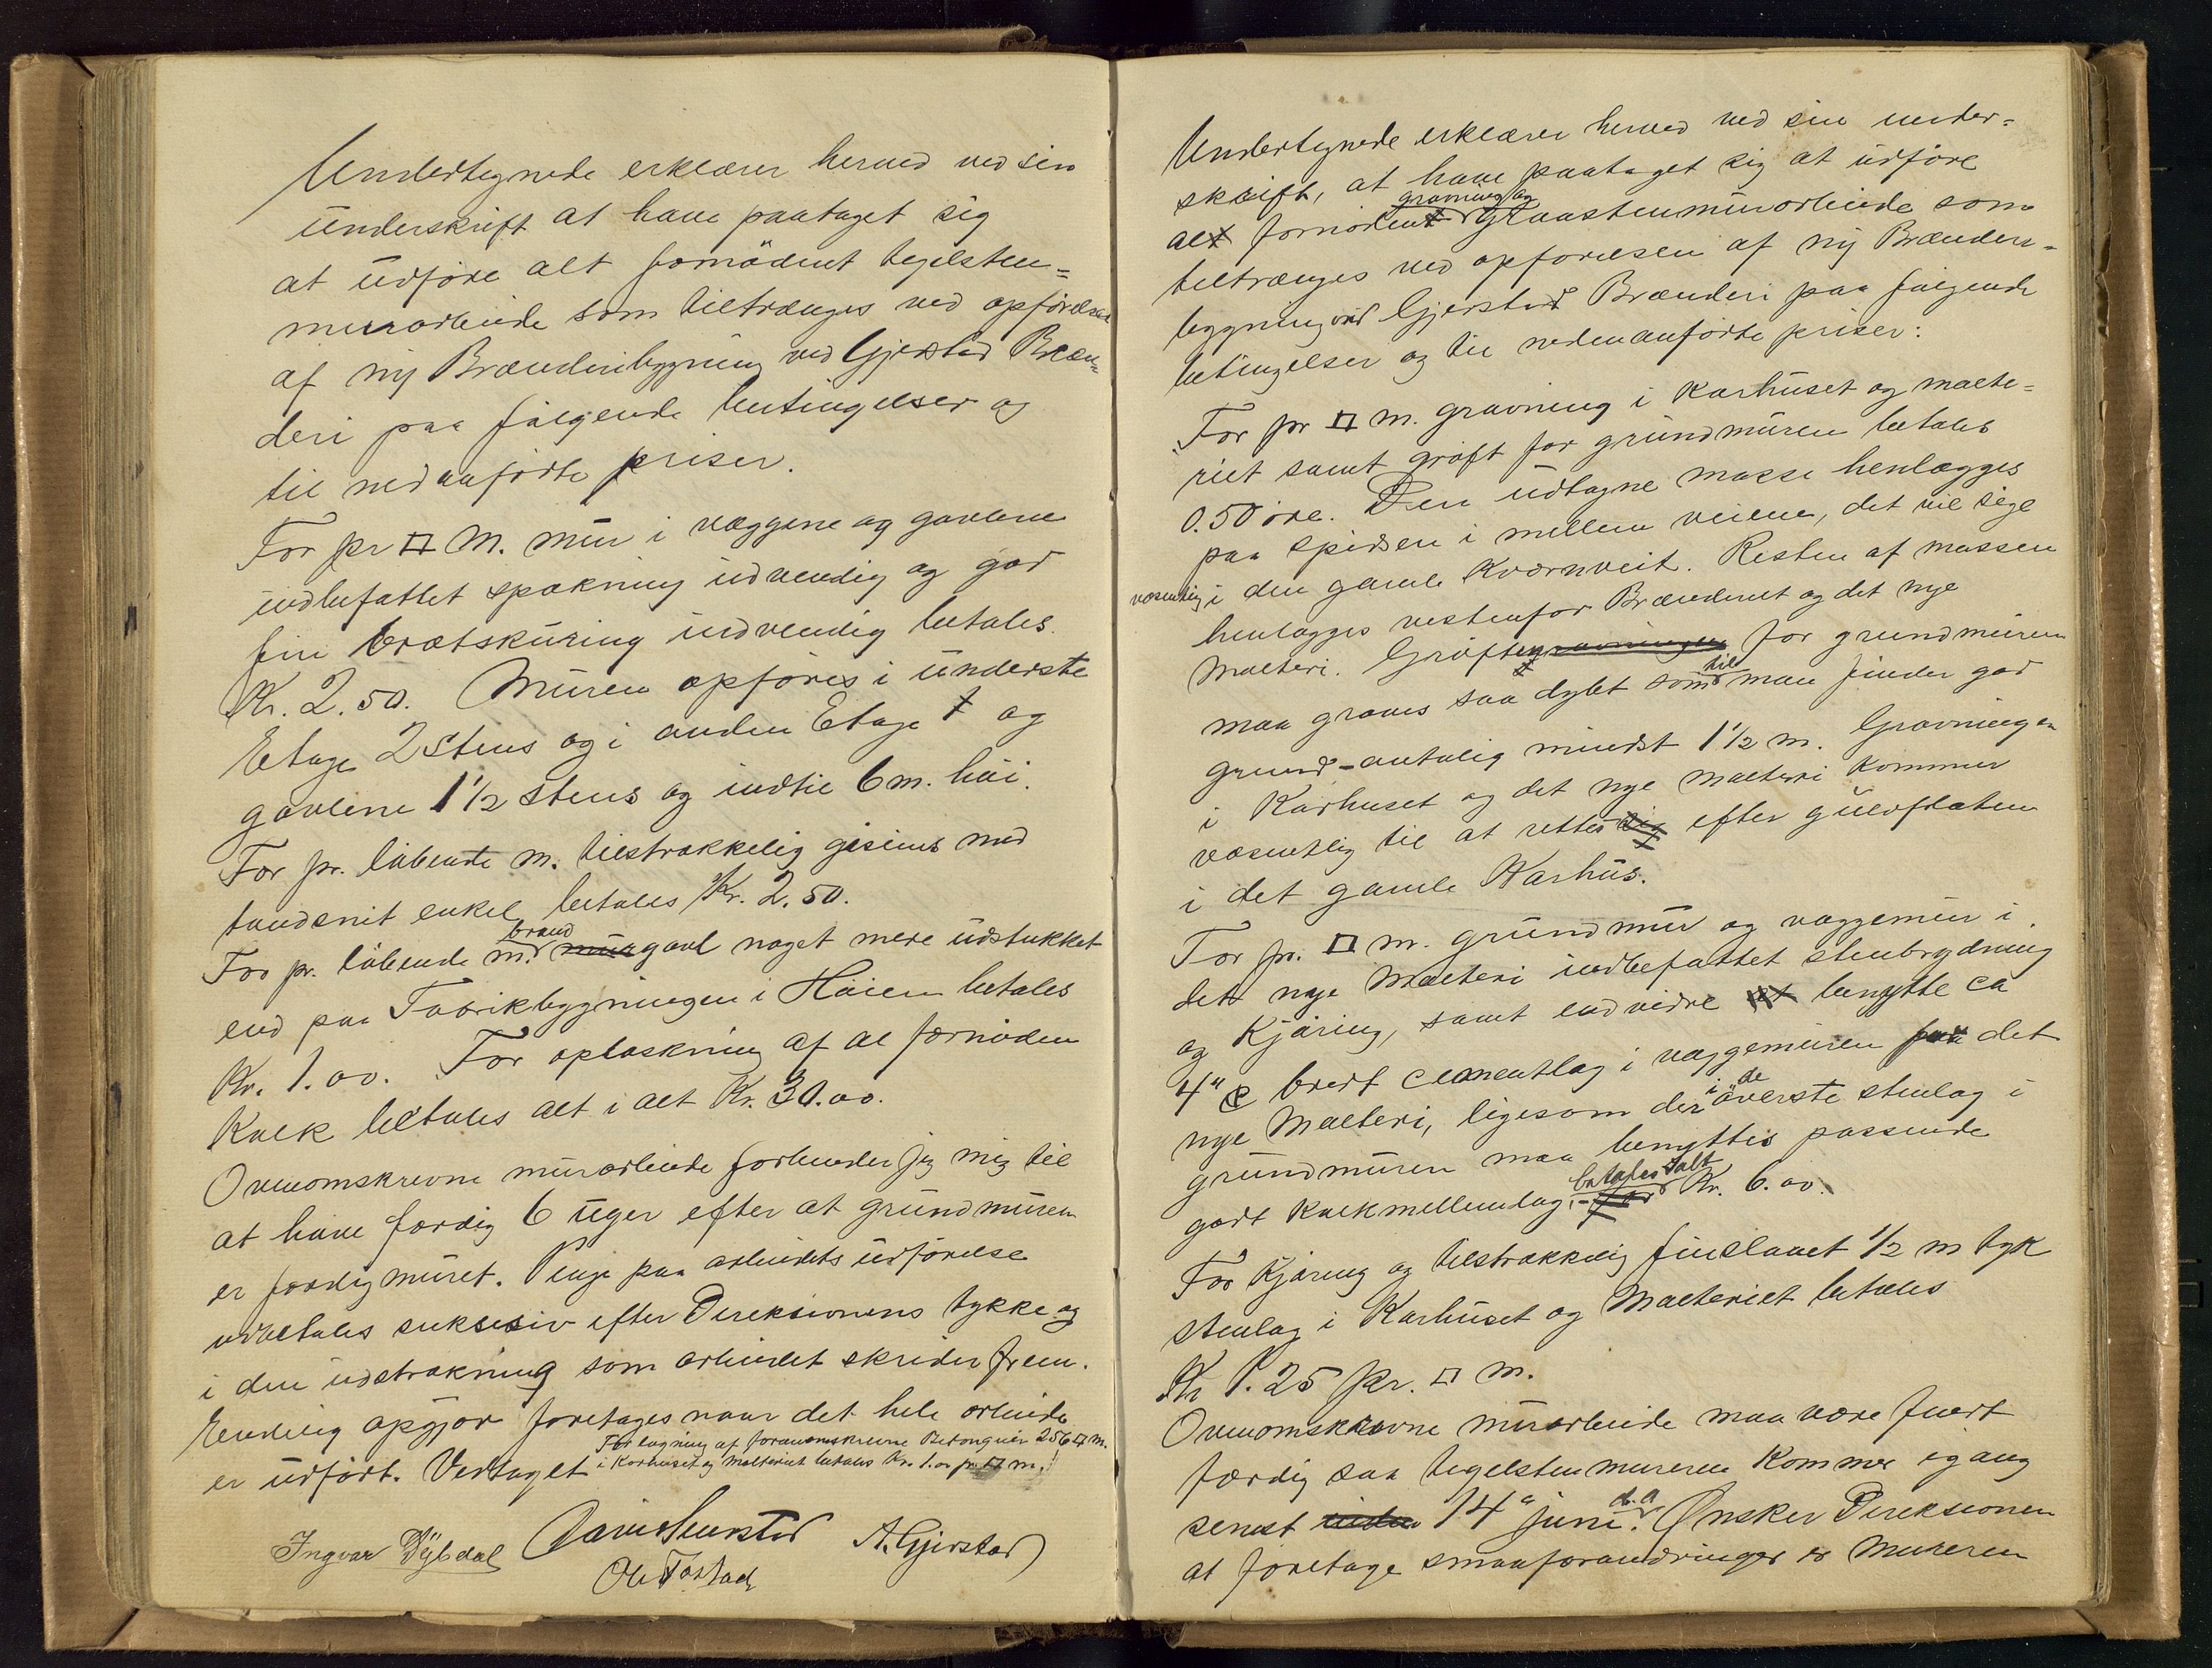 Undertegnede erklærer herved ved sin
underskrift at have paataget sig
at udføre alt fornødent tegelsten=
murarbeide som tiltrænges ved opførelse
af ny Brænderibygning ved Gjerstad Bræn=
deri paa følgende betingelser og
til nedanførte priser.
For pr □ M. mur i væggene og gavlene
indbefattet spækning udvendig og god
fin brætskuring indvendig betales
Kr. 2.50. Muren opføres i underste
Etage 2 Stens og i anden Etage og
gavlene 1½ stens og indtil 6 m. høi.
For pr. løbende m. tilstrækkelig gesims med
tandsnit enkel betales Kr. 2.50.
For pr. løbende m. brand murgavl noget mere udstukket
end paa Fabrikbygningen i Høien betales
Kr. 1.00. For opløskning af al fornøden
Kalk betales alt i alt Kr. 30.00.
Ovenomskrevne murarbeide forbinder jeg mig til
at have færdig 6 uger efter at grundmuren
er færdig muret. Penge paa arbeidets udførelse
udbetales suksesiv efter Direksionens tykke og
i den udstrækning som arbeidet skrider frem.
Endelig opgjør foretages naar det hele arbeide
For lægning af foranomskrevne Betongulv 256 □ m.
er udført. Vedtaget i Karhuset og Malteriet betales Kr. 1.00 pr. □ m.
Ingvar Dybdal A. Gjerstad
Undertegnede erklærer herved ved sin under=
skrift, at have paataget sig at udføre
gravning og
alt fornødent Graastenmurarbeide som
tiltrænges ved opførelsen af ny Brænderi=
bygning ved Gjerstad Brænderi paa følgende
betingelser og til nedenanførte priser:
For pr □ m. gravning i Karhuset og malte=
riet samt grøft for grundmuren betales
0.50 øre. Den udtagne masse henlægges
paa spidsen i mellem veiene, det vil sige
væsentlig i den gamle Kværnveit. Resten af massen
henlægges vestenfor Brænderiet og det nye
Malteri. Grøftegravningen for grundmuren
maa graves saa dybt som til man finder god
grund - antalig mindst 1½ m. Gravningen
i Karhuset og det nye malteri kommer
væsentlig til at rettes sig efter gulvflaten
i det gamle Karhus.
For pr. □ m. grundmur og væggemur i
det nye Malteri indbefattet stenbrydning
og Kjøring, samt endvidre at benytte ca
4" bredt cementlag i væggemuren paa det
nye Malteri, ligesom der i de øverste stenlag i
grundmuren maa benyttes passende
godt kalkmellemlag, betales alt Kr. 6.00.
For Kjøring og tilstrækkelig finslaaet ½ m tyk
stenlag i Karhuset og Malteriet betales
Kr 1.25 pr. □ m.
Ovenomskrevne murarbeide maa være fuert
færdig saa tegelstenmureren kommer igang
senest inden 14de juni d.a. Ønsker Direksionen
at foretage smaaforandringer er Mureren